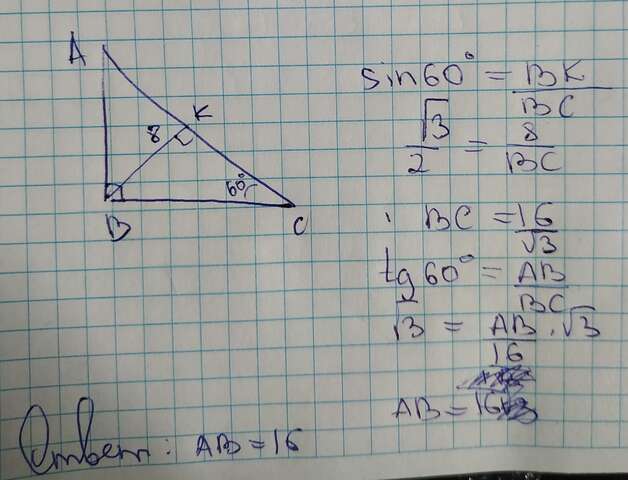 A
K
8
60°
B
C
sin60° = BK/BC
√3/2 = 8/BC
BC = 16/√3
tg60° = AB/BC
√3 = AB/16 · √3
AB = 16
Ответ: AB = 16